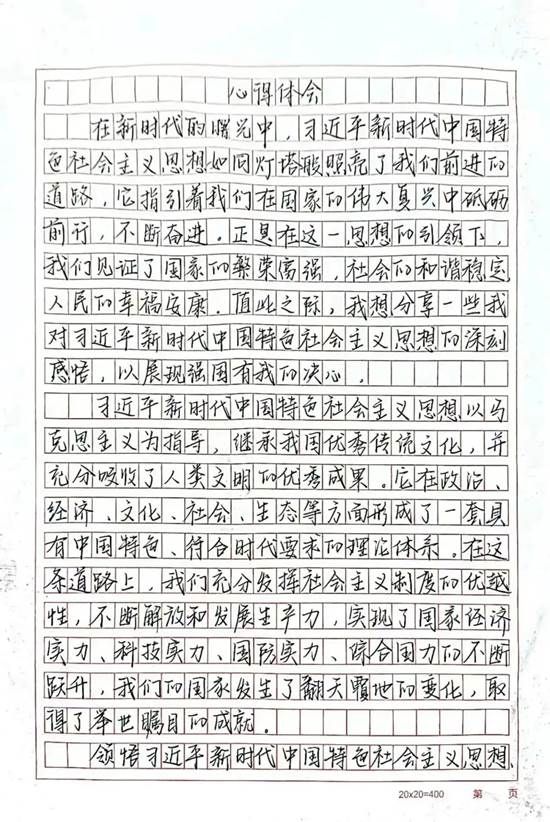 心得体会
在新时代的曙光中，习近平新时代中国特
色社会主义思想如同灯塔般照亮了我们前进的
道路，它指引着我们在国家的伟大复兴中砥砺
前行，不断奋进。正是在这一思想的引领下，
我们见证了国家的繁荣富强，社会的和谐稳定，
人民的幸福安康。值此之际，我想分享一些我
对习近平新时代中国特色社会主义思想的深刻
感悟，以展现强国有我的决心。
习近平新时代中国特色社会主义思想以马
克思主义为指导，继承我国优秀传统文化，并
充分吸收了人类文明的优秀成果。它在政治、
经济、文化、社会、生态等方面形成了一套具
有中国特色、符合时代要求的理论体系。在这
条道路上，我们充分发挥社会主义制度的优越
性，不断解放和发展生产力，实现了国家经济
实力、科技实力、国防实力、综合国力的不断
跃升，我们的国家发生了翻天覆地的变化，取
得了举世瞩目的成就。
领悟习近平新时代中国特色社会主义思想，
20x20=400 第 页